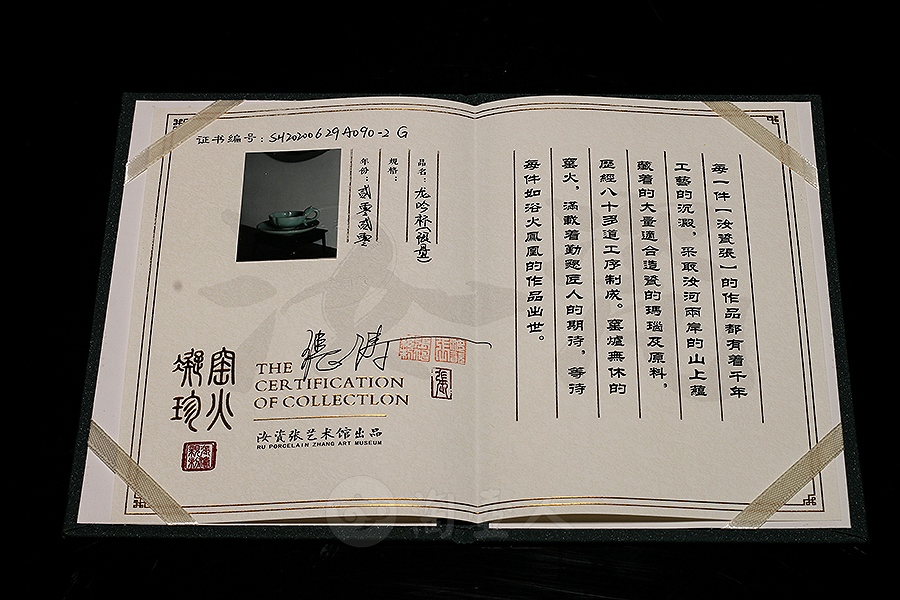 证书编号：SH20200629A090-2 G
品名：龙吟杯(限量)
规格：
年份：贰零贰零
窑火
凝珍
THE
CERTIFICATION
OF COLLECTLON
汝瓷张艺术馆出品
RU PORCELAIN ZHANG ART MUSEUM
每一件【汝瓷張】的作品都有着千年
工藝的沉澱，采取汝河兩岸的山上蘊
藏着的大量適合造瓷的瑪瑙及原料，
歷經八十多道工序制成。窑爐無休的
窑火，滿載着勤懇匠人的期待，等待
每件如浴火鳳凰的作品出世。